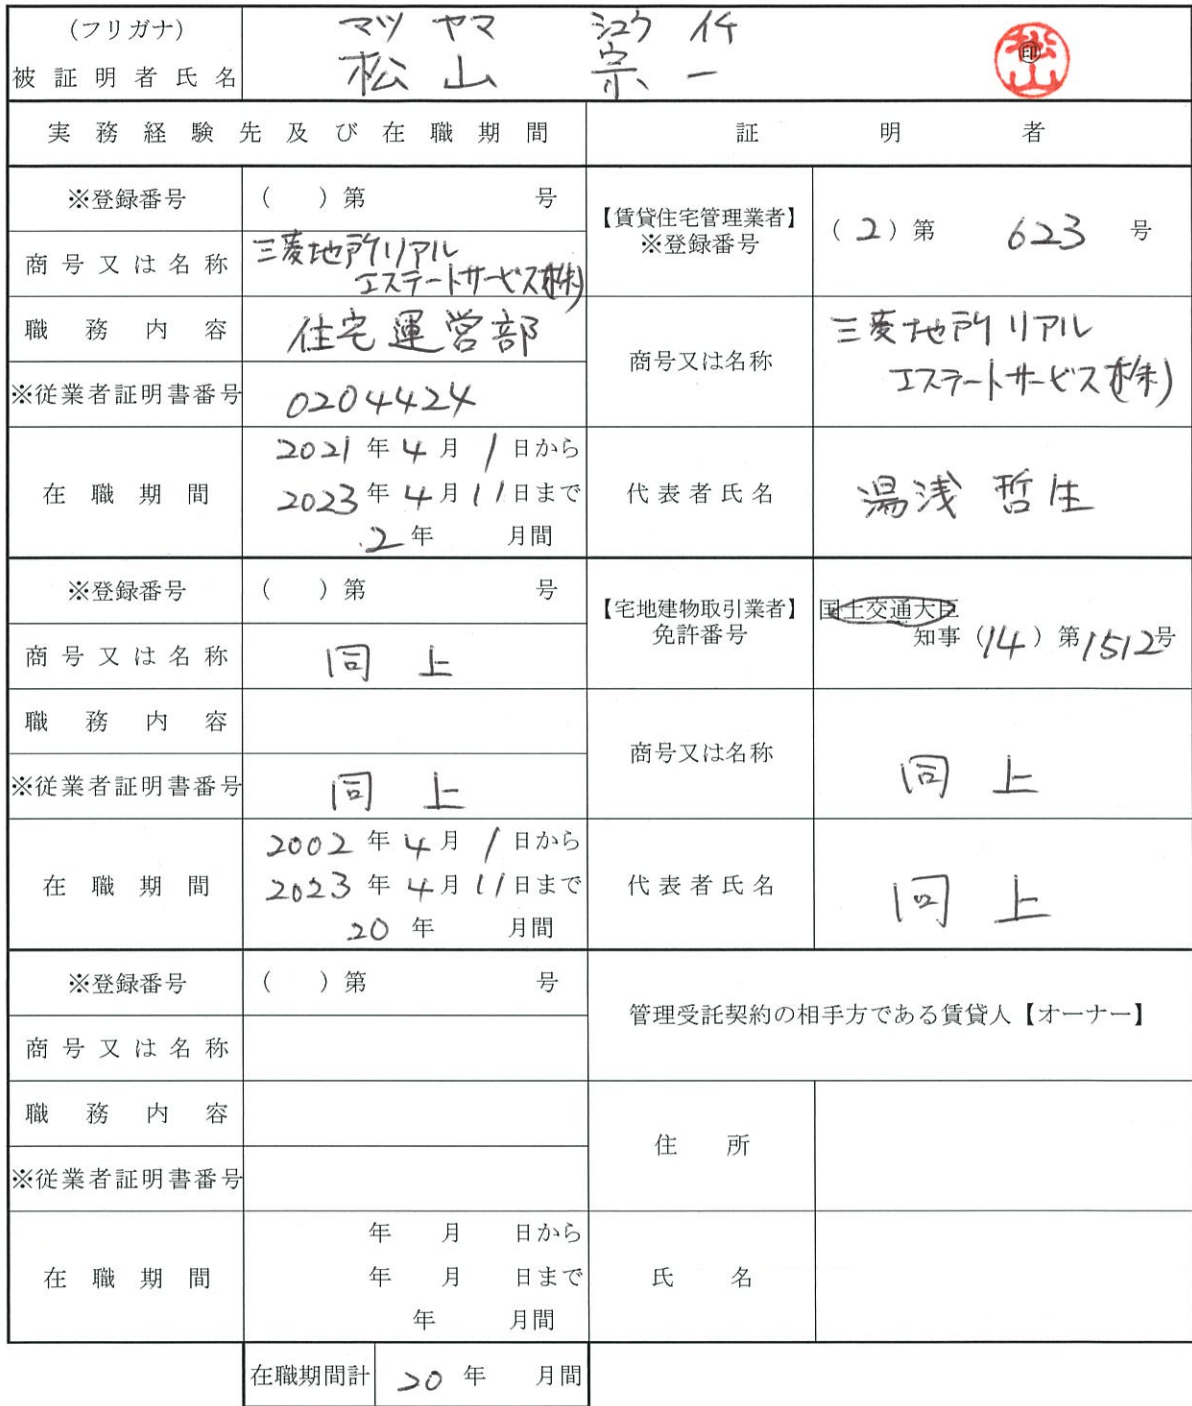 (フリガナ) マツ ヤマ シュウ イチ
被証明者氏名 松山 宗一 ㊞ 松山
実務経験先及び在職期間 証明者
※登録番号 ( )第 号
【賃貸住宅管理業者】
※登録番号 (2)第 623 号
商号又は名称 三菱地所リアル
エステートサービス(株)
職務内容 住宅運営部
商号又は名称 三菱地所リアル
エステートサービス(株)
※従業者証明書番号 0204424
在職期間 2021年4月1日から
2023年4月11日まで
2年 月間
代表者氏名 湯浅 哲生
※登録番号 ( )第 号
【宅地建物取引業者】
免許番号
国土交通大臣
知事(14)第1512号
商号又は名称 同上
職務内容
商号又は名称 同上
※従業者証明書番号 同上
在職期間 2002年4月1日から
2023年4月11日まで
20年 月間
代表者氏名 同上
※登録番号 ( )第 号
管理受託契約の相手方である賃貸人【オーナー】
商号又は名称
職務内容
住所
※従業者証明書番号
在職期間 年 月 日から
年 月 日まで
年 月間
氏名
在職期間計 20年 月間